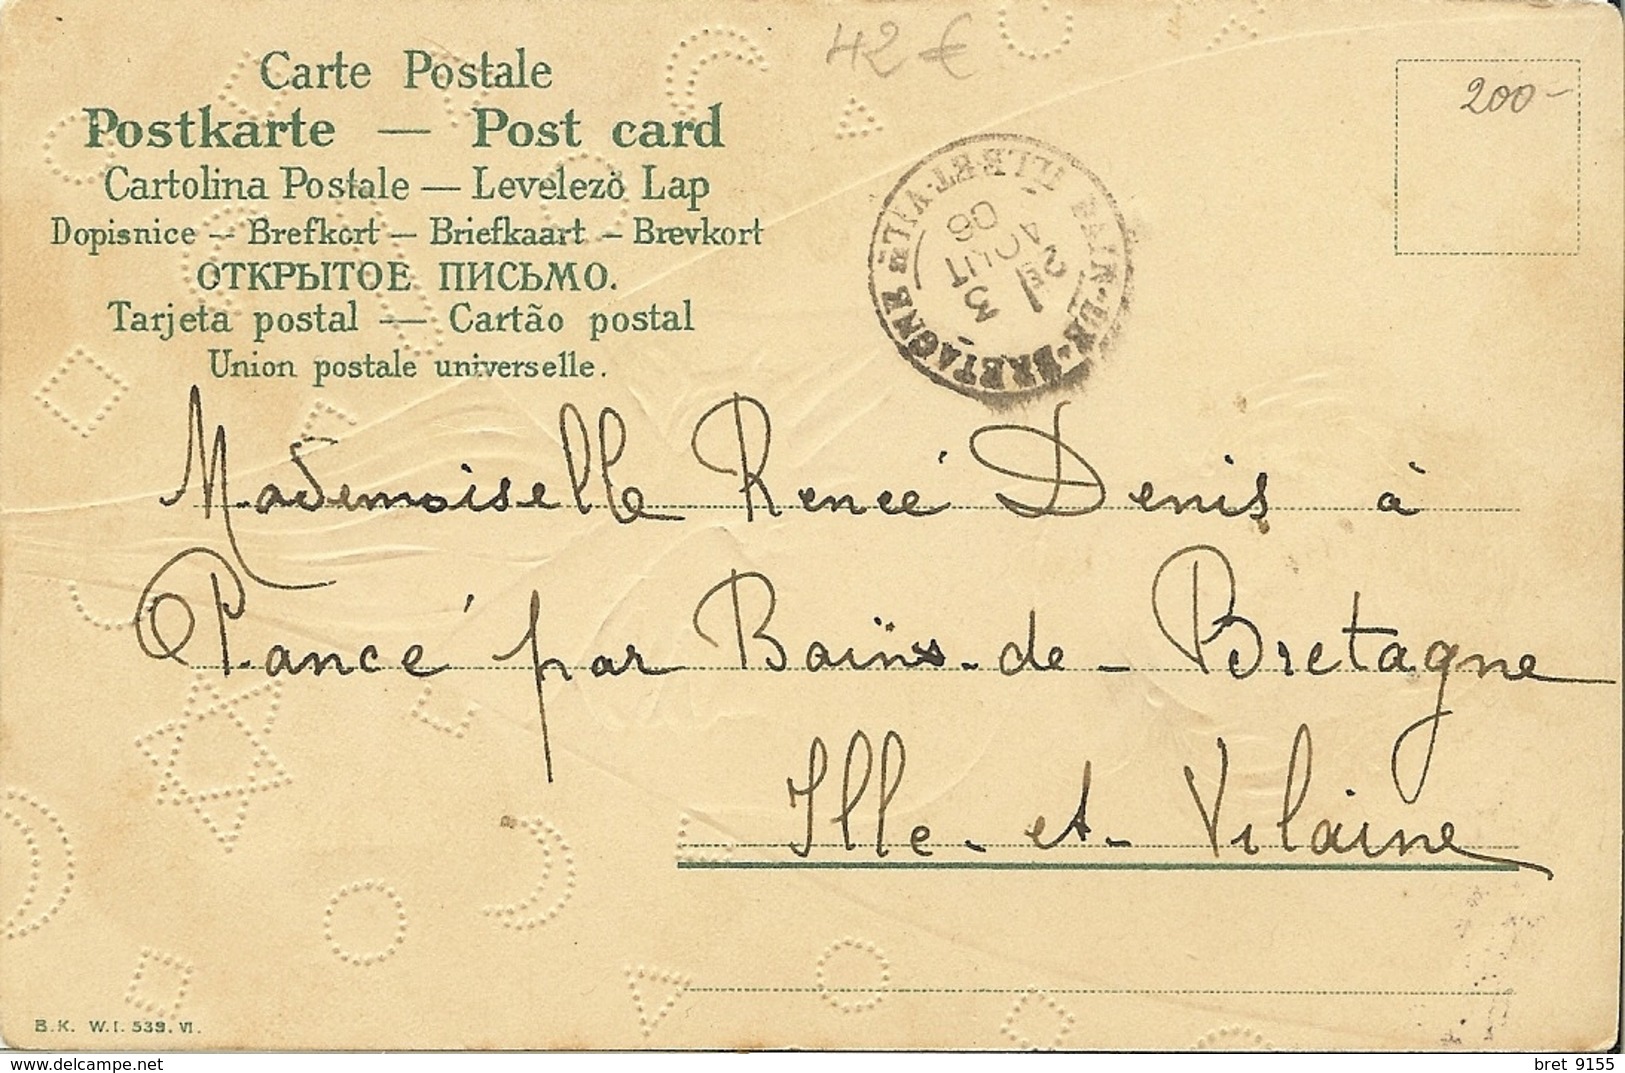 42 €
200-
Carte Postale
Postkarte — Post card
Cartolina Postale — Levelezö Lap
Dopisnice — Brefkort — Briefkaart — Brevkort
ОТКРЫТОЕ ПИСЬМО.
Tarjeta postal — Cartão postal
Union postale universelle.
BAIN-DE-BRETAGNE ILLE-ET-VILAINE
AOUT
06
Mademoiselle Renée Denis à
Pancé par Bain-de-Bretagne
Ille-et-Vilaine
B.K. W.I. 539. VI.
delcampe.net
bret 9155